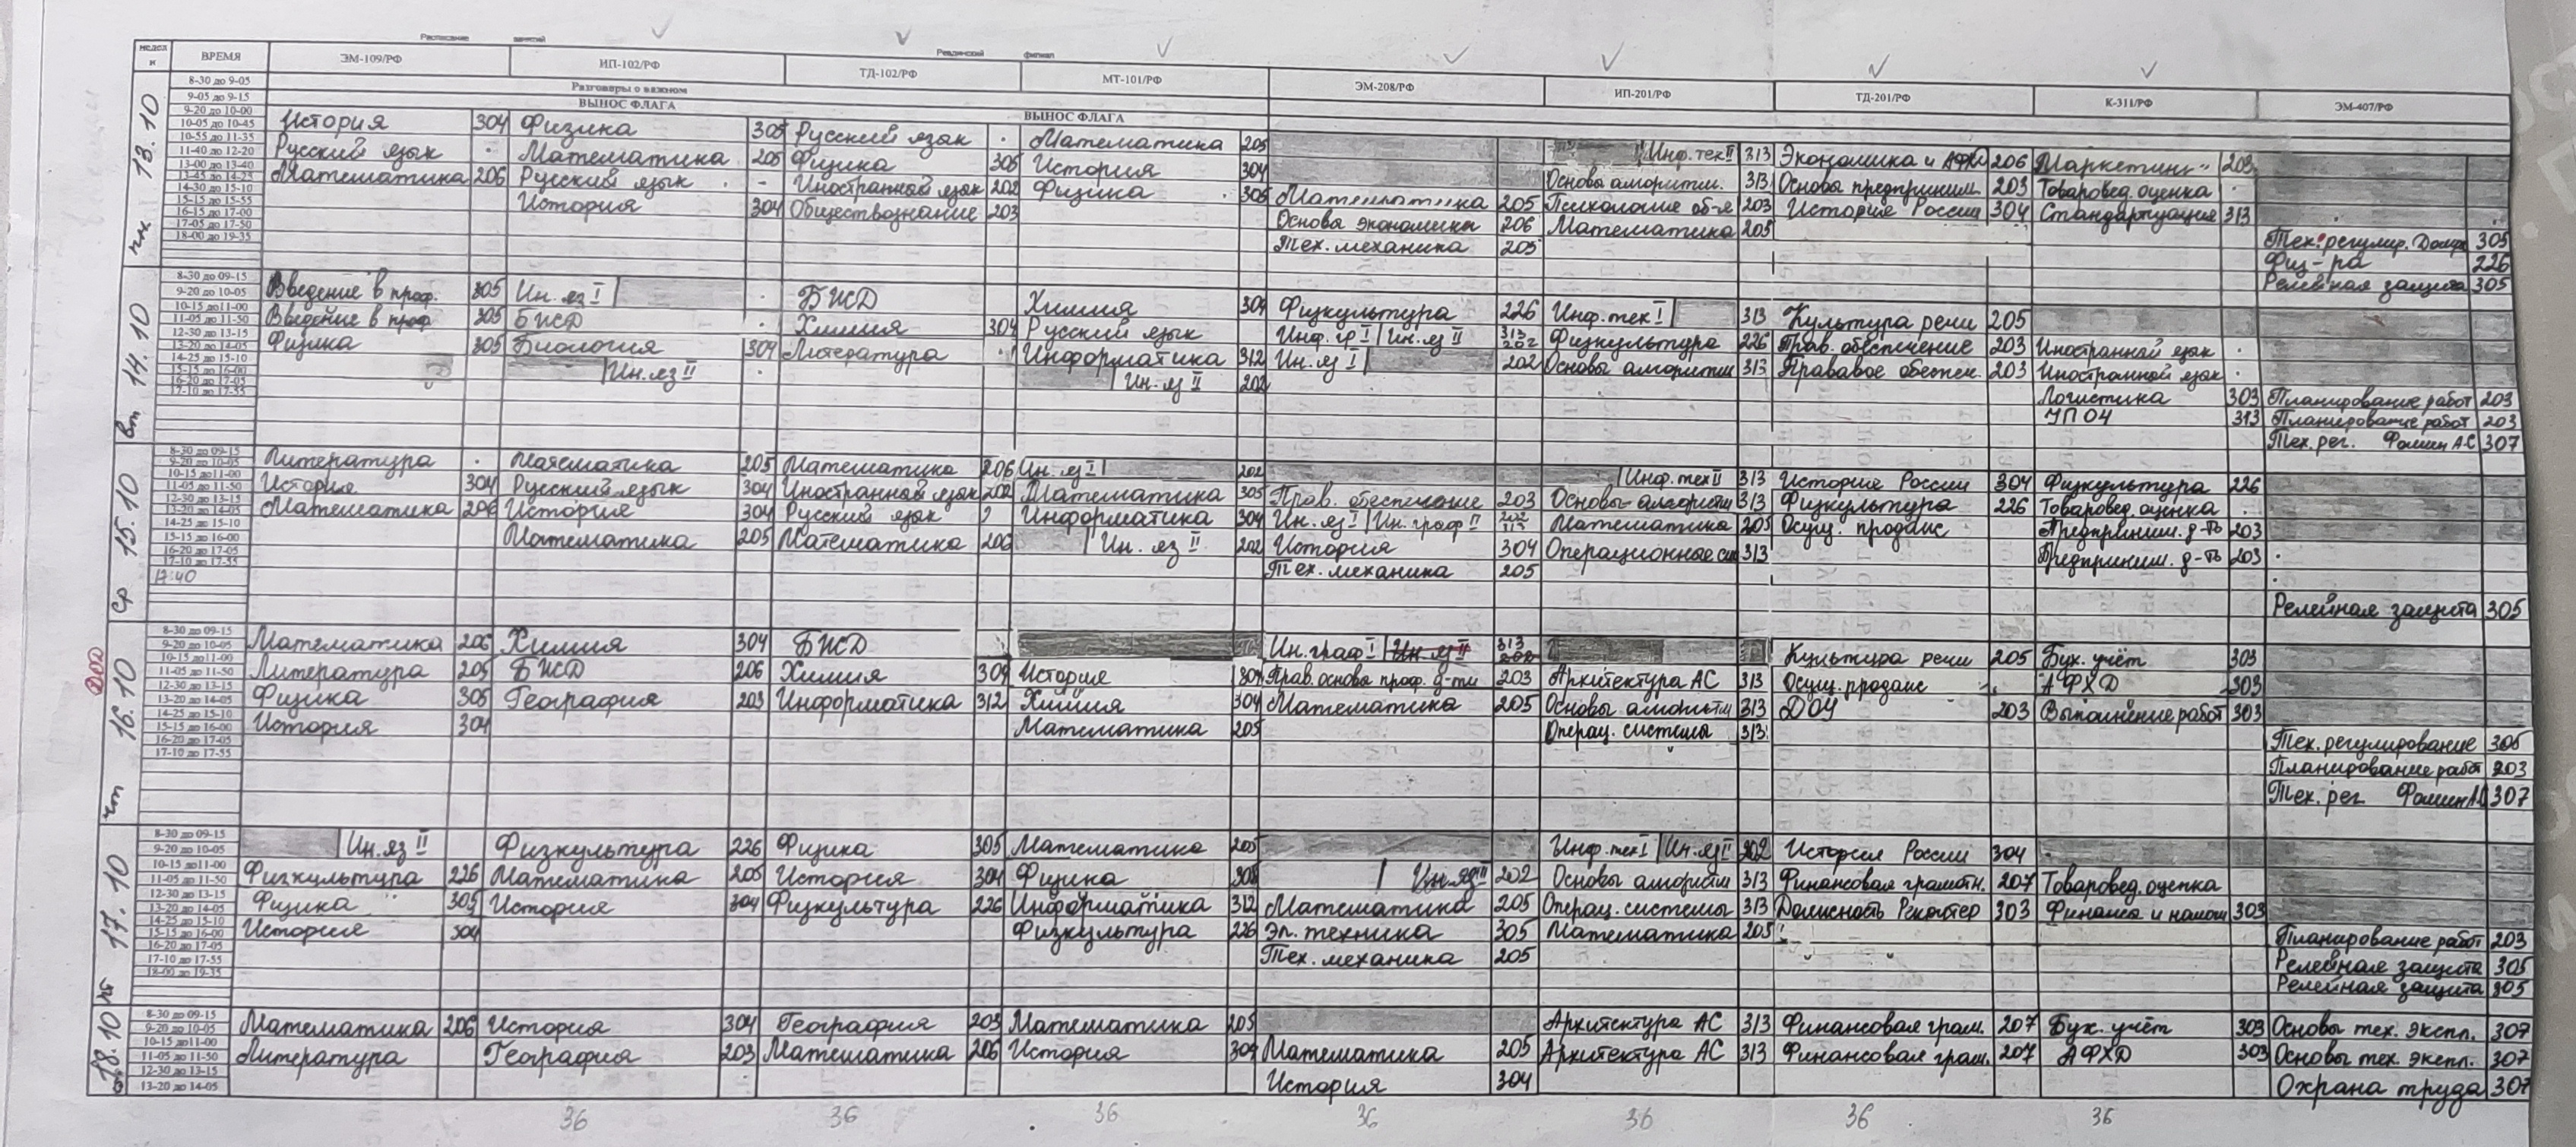 Расписание занятий Ревдинский филиал
недели ВРЕМЯ ЭМ-109/РФ ИП-102/РФ ТД-102/РФ МТ-101/РФ ЭМ-208/РФ ИП-201/РФ ТД-201/РФ К-311/РФ ЭМ-407/РФ
пн. 13.10
8-30 до 9-05 Разговоры о важном
9-05 до 9-15 ВЫНОС ФЛАГА ВЫНОС ФЛАГА
9-20 до 10-00
10-05 до 10-45 История 304 Физика 305 Русский язык Математика 205
10-55 до 11-35
11-40 до 12-20 Русский язык Математика 205 Физика 305 История 304 Инф.тех II 313 Экономика и АФХД 206 Маркетинг 203
13-00 до 13-40
13-45 до 14-25 Математика 206 Русский язык - Иностранный язык 202 Физика 305 Основы алгоритм. 313 Основы предприним. 203 Товаровед. оценка
14-30 до 15-10
15-15 до 15-55 История 304 Обществознание 203 Математика 205 Психология об-я 203 История России 304 Стандартизация 313
16-15 до 17-00 Основы экономики 206 Математика 205
17-05 до 17-50 Тех. механика 205 Тех. регулир. 305
18-00 до 19-35 Физ-ра 226
Релейная защита 305
вт 14.10
8-30 до 09-15
9-20 до 10-05 Введение в проф. 305 Ин. яз I БЖД Химия 304 Физкультура 226 Инф.тех I 313 Культура речи 205
10-15 до 11-00
11-05 до 11-50 Введение в проф 305 БЖД Химия 304 Русский язык Инф. гр I Ин. яз II 313 202 Физкультура 226 Прав. обеспечение 203 Иностранный язык
12-30 до 13-15
13-20 до 14-05 Физика 305 Биология 304 Литература Информатика 312 Ин. яз I 202 Основы алгоритм 313 Правовое обеспеч. 203 Иностранный язык
14-25 до 15-10
15-15 до 16-00 Ин. яз II Ин. яз II 202 Логистика 303 Планирование работ 203
16-20 до 17-05 УП 04 313 Планирование работ 203
17-10 до 17-55 Тех. рег. Фомин АС 307
ср 15.10
8-30 до 09-15
9-20 до 10-05 Литература Математика 205 Математика 206 Ин. яз I 202 Инф тех II 313 История России 304 Физкультура 226
10-15 до 11-00
11-05 до 11-50 История 304 Русский язык 304 Иностранный язык 202 Математика 305 Прав. обеспечение 203 Основы алгоритм 313 Физкультура 226 Товаровед. оценка
12-30 до 13-15
13-20 до 14-05 Математика 206 История 304 Русский язык Информатика 304 Ин. яз I Ин. граф II 202 313 Математика 205 Осущ. продаж Предприним. д-ть 203
14-25 до 15-10
15-15 до 16-00 Математика 205 Математика 206 Ин. яз II 202 История 304 Операционные си 313 Предприним. д-ть 203
16-20 до 17-05 Тех. механика 205
17-10 до 17-55
17:40
Релейная защита 305
чт 16.10
8-30 до 09-15
9-20 до 10-05 Математика 206 Химия 304 БЖД Ин. граф I Ин. яз II 313 202 Культура речи 205 Бух. учёт 303
10-15 до 11-00
11-05 до 11-50 Литература 205 БЖД 206 Химия 304 История 304 Прав. основы проф. д-ти 203 Архитектура АС 313 Осущ. продаж АФХД 303
12-30 до 13-15
13-20 до 14-05 Физика 305 География 203 Информатика 312 Химия 304 Математика 205 Основы алгоритм 313 ДОУ 203 Выполнение работ 303
14-25 до 15-10
15-15 до 16-00 История 304 Математика 205 Операц. системы 313
16-20 до 17-05 Тех. регулирование 305
17-10 до 17-55 Планирование работ 203
Тех. рег Фомин АС 307
пт 17.10
8-30 до 09-15
9-20 до 10-05 Ин. яз II Физкультура 226 Физика 305 Математика 205 Инф. тех I Ин. яз II 202 История России 304
10-15 до 11-00
11-05 до 11-50 Физкультура 226 Математика 205 История 304 Физика 305 Ин. яз II 202 Основы алгоритм 313 Финансовая грамотн. 207 Товаровед. оценка
12-30 до 13-15
13-20 до 14-05 Физика 305 История 304 Физкультура 226 Информатика 312 Математика 205 Операц. системы 313 Должность 303 Финансы и налог 303
14-25 до 15-10
15-15 до 16-00 История 304 Физкультура 226 Эл. техника 305 Математика 205 Планирование работ 203
16-20 до 17-05
17-10 до 17-55 Тех. механика 205 Релейная защита 305
18-00 до 19-35 Релейная защита 305
18.10
8-30 до 09-15
9-20 до 10-05 Математика 206 История 304 География 203 Математика 205 Архитектура АС 313 Финансовая грам. 207 Бух. учёт 303 Основы тех. экспл. 307
10-15 до 11-00
11-05 до 11-50 Литература География 203 Математика 206 История 304 Математика 205 Архитектура АС 313 Финансовая грам. 207 АФХД 303 Основы тех. экспл. 307
12-30 до 13-15
13-20 до 14-05 История 304 Охрана труда 307
36 36 36 36 36 36 36